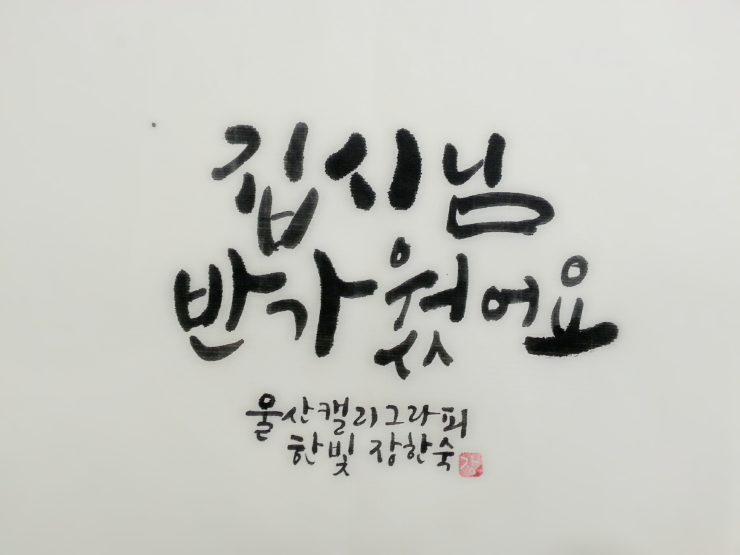 집시님
반가웠어요
울산캘리그라피
한빛 장한숙
장